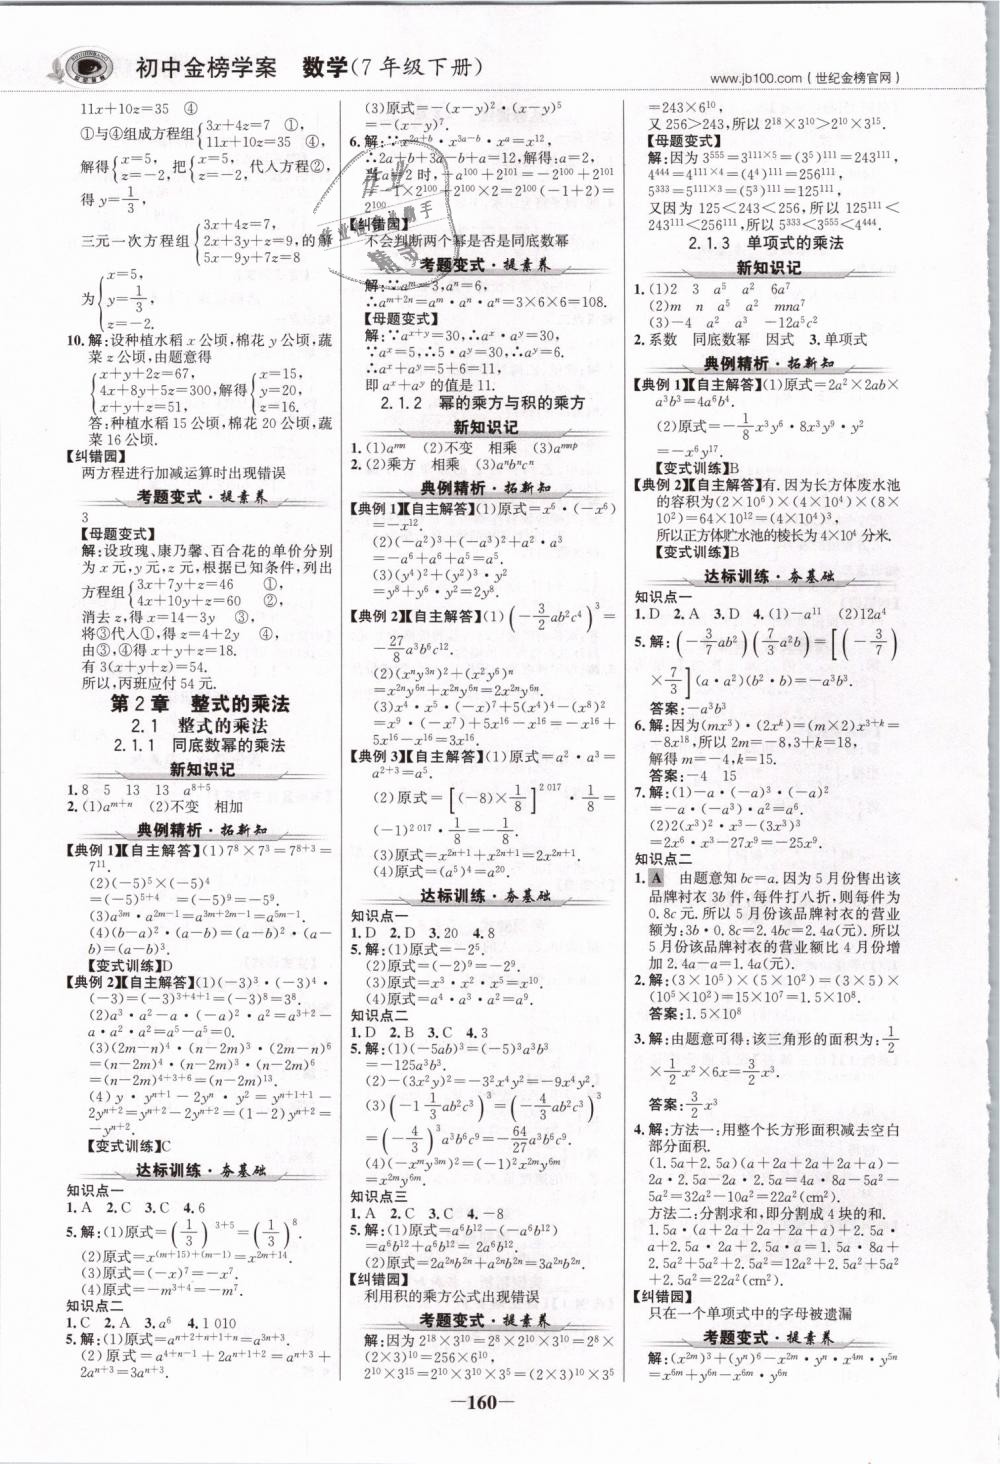 初中金榜学案 数学(7年级下册)
www.jb100.com(世纪金榜官网)
11x+10z=35 ④
①与④组成方程组{3x+4z=7 ①, 11x+10z=35 ④.
解得{x=5, z=-2, 把{x=5, z=-2, 代入方程②,
得 y=1/3,
三元一次方程组{3x+4z=7, 2x+3y+z=9, 5x-9y+7z=8 的解
为{x=5, y=1/3, z=-2.
10.解:设种植水稻 x 公顷,棉花 y 公顷,蔬
菜 z 公顷,由题意得
{x+y+2z=67, 4x+8y+5z=300, x+y+z=51, 解得{x=15, y=20, z=16.
答:种植水稻 15 公顷,棉花 20 公顷,蔬
菜 16 公顷.
【纠错园】
两方程进行加减运算时出现错误
考题变式·提素养
3
【母题变式】
解:设玫瑰、康乃馨、百合花的单价分别
为 x 元,y 元,z 元,根据已知条件,列出
方程组{3x+7y+z=46 ①, 4x+10y+z=60 ②.
消去 z,得 x=14-3y ③,
将③代入①,得 z=4+2y ④,
由③,④得 x+y+z=18.
有 3(x+y+z)=54.
所以,丙班应付 54 元.
第 2 章 整式的乘法
2.1 整式的乘法
2.1.1 同底数幂的乘法
新知识记
1. 8 5 13 13 a⁸⁺⁵
2. (1)aᵐ⁺ⁿ (2)不变 相加
典例精析·拓新知
【典例 1】【自主解答】(1)7⁸×7³=7⁸⁺³=
7¹¹.
(2)(-5)⁵×(-5)⁴
=(-5)⁵⁺⁴=(-5)⁹=-5⁹.
(3)a³ᵐ·a²ᵐ⁻¹=a³ᵐ⁺²ᵐ⁻¹=a⁵ᵐ⁻¹.
(4)(b-a)²·(a-b)=(a-b)²·(a-
b)=(a-b)³.
【变式训练】D
【典例 2】【自主解答】(1)(-3)³·(-3)⁴
·(-3)=(-3)³⁺⁴⁺¹=(-3)⁸=3⁸.
(2)a³·a²-a·(-a)²·a²=a³⁺²-
a·a²·a²=a⁵-a⁵=0.
(3)(2m-n)⁴·(n-2m)³·(2m-n)⁶
=(n-2m)⁴·(n-2m)³·(n-2m)⁶
=(n-2m)⁴⁺³⁺⁶=(n-2m)¹³.
(4)y·yⁿ⁺¹-2yⁿ·y²=yⁿ⁺¹⁺¹-
2yⁿ⁺²=yⁿ⁺²-2yⁿ⁺²=(1-2)yⁿ⁺²=
-yⁿ⁺².
【变式训练】C
达标训练·夯基础
知识点一
1. A 2. C 3. C 4. 6
5.解:(1)原式=(1/3)³⁺⁵=(1/3)⁸.
(2)原式=x⁽ᵐ⁺¹⁵⁾⁺⁽ᵐ⁻¹⁾=x²ᵐ⁺¹⁴.
(3)原式=(-x)⁷=-x⁷.
(4)原式=-m³⁺⁴=-m⁷.
知识点二
1. C 2. A 3. a⁶ 4. 1 010
5.解:(1)原式=aⁿ⁺²⁺ⁿ⁺¹⁺ⁿ=a³ⁿ⁺³.
(2)原式=a⁴⁺ⁿ⁻¹+2aⁿ⁺¹⁺²=aⁿ⁺³+
2aⁿ⁺³=3aⁿ⁺³.
(3)原式=-(x-y)²·(x-y)⁵
=-(x-y)⁷.
6.解:∵x²ᵃ⁺ᵇ·x³ᵃ⁻ᵇ·xᵃ=x¹²,
∴2a+b+3a-b+a=12,解得:a=2,
当a=2时,-a¹⁰⁰+2¹⁰¹=-2¹⁰⁰+2¹⁰¹
=-1×2¹⁰⁰+2¹⁰⁰×2=2¹⁰⁰(-1+2)=
2¹⁰⁰
【纠错园】
不会判断两个幂是否是同底数幂
考题变式·提素养
解:∵aᵐ=3,aⁿ=6,
∴aᵐ⁺²ⁿ=aᵐ·aⁿ·aⁿ=3×6×6=108.
【母题变式】
解:∵aˣ⁺ʸ=30,∴aˣ·aʸ=30,
∵aˣ=5,∴5·aʸ=30,∴aʸ=6.
∴aˣ+aʸ=5+6=11,
即 aˣ+aʸ 的值是 11.
2.1.2 幂的乘方与积的乘方
新知识记
1. (1)aᵐⁿ (2)不变 相乘 (3)aᵐⁿᵖ
2. (2)乘方 相乘 (3)aⁿbⁿcⁿ
典例精析·拓新知
【典例 1】【自主解答】(1)原式=x⁶·(-x⁶)
=-x¹².
(2)(-a²)³+(-a³)²+a²·a³
=-a⁶+a⁶+a⁵=a⁵.
(3)(y⁴)²+(y²)³·y²
=y⁸+y⁶·y²=2y⁸.
【典例 2】【自主解答】(1)(-3/2ab²c⁴)³=
-27/8a³b⁶c¹².
(2)(xⁿy³ⁿ)²+(x²y⁶)ⁿ
=x²ⁿy⁶ⁿ+x²ⁿy⁶ⁿ=2x²ⁿy⁶ⁿ.
(3)x⁴·x⁵·(-x)⁷+5(x⁴)⁴-(x⁸)²
=x⁹·(-x⁷)+5x¹⁶-x¹⁶=-x¹⁶+
5x¹⁶-x¹⁶=3x¹⁶.
【典例 3】【自主解答】(1)原式=a²·a³=
a²⁺³=a⁵.
(2)原式=[(-8)×1/8]²⁰¹⁷·1/8=
(-1)²⁰¹⁷·1/8=-1/8.
(3)原式=x²ⁿ⁺¹+x²ⁿ⁺¹=2x²ⁿ⁺¹.
(4)原式=(a⁵)⁴=a²⁰.
达标训练·夯基础
知识点一
1. D 2. D 3. 20 4. 8
5.解:(1)原式=-2⁵.
(2)原式=(-2)⁹=-2⁹.
(3)原式=x³·x²·x⁵=x¹⁰.
(4)原式=a⁴·a³·a²=a⁹.
知识点二
1. D 2. B 3. C 4. 3
5.解:(1)(-5ab)³=(-5)³a³b³
=-125a³b³.
(2)-(3x²y)²=-3²x⁴y²=-9x⁴y².
(3)(-1 1/3ab²c³)³=(-4/3ab²c³)³
=(-4/3)³a³b⁶c⁹=-64/27a³b⁶c⁹.
(4)(-xᵐy³ᵐ)²=(-1)²x²ᵐy⁶ᵐ
=x²ᵐy⁶ᵐ.
知识点三
1. C 2. C 3. C 4. -8
5.解:(1)原式=a⁶b¹²-(-a⁶b¹²)
=a⁶b¹²+a⁶b¹²=2a⁶b¹².
(2)原式=2a²ⁿb²ⁿ+a²ⁿb²ⁿ=3a²ⁿb²ⁿ.
【纠错园】
利用积的乘方公式出现错误
考题变式·提素养
解:因为 2¹⁸×3¹⁰=2⁸×2¹⁰×3¹⁰=2⁸×
(2×3)¹⁰=256×6¹⁰,
2¹⁰×3¹⁵=2¹⁰×3¹⁰×3⁵=(2×3)¹⁰×3⁵
=243×6¹⁰,
又 256>243,所以 2¹⁸×3¹⁰>2¹⁰×3¹⁵.
【母题变式】
解:因为 3⁵⁵⁵=3¹¹¹ˣ⁵=(3⁵)¹¹¹=243¹¹¹,
4⁴⁴⁴=4¹¹¹ˣ⁴=(4⁴)¹¹¹=256¹¹¹,
5³³³=5¹¹¹ˣ³=(5³)¹¹¹=125¹¹¹,
又因为 125<243<256,所以 125¹¹¹<
243¹¹¹<256¹¹¹,所以 5³³³<3⁵⁵⁵<4⁴⁴⁴.
2.1.3 单项式的乘法
新知识记
1. (1)2 3 a⁵ a² 6a⁷
(2)m n a⁵ a² mna⁷
(3)-4 a² a³ -12a⁵c²
2.系数 同底数幂 因式 3.单项式
典例精析·拓新知
【典例 1】【自主解答】(1)原式=2a²×2ab×
a³b³=4a⁶b⁴.
(2)原式=-1/8x³y⁶·8x³y⁹·y²
=-x⁶y¹⁷.
【变式训练】B
【典例 2】【自主解答】有.因为长方体废水池
的容积为(2×10⁶)×(4×10⁴)×(8×
10²)=64×10¹²=(4×10⁴)³,
所以正方体贮水池的棱长为 4×10⁴ 分米.
【变式训练】B
达标训练·夯基础
知识点一
1. D 2. A 3. D 4. (1)-a¹¹ (2)12a⁴
5.解:(-3/7ab²)(7/3a²b)=[(-3/7)
×7/3](a·a²)(b²·b)=-a³b³.
答案:-a³b³
6.解:因为(mx³)·(2xᵏ)=(m×2)x³⁺ᵏ=
-8x¹⁸,所以 2m=-8,3+k=18,
解得 m=-4,k=15.
答案:-4 15
7.解:(1)-a·(-a)³·(-a)²
=-a·(-a³)·a²=a⁶.
(2)2(x³)²·x³-(3x³)³
=2x⁶·x³-27x⁹=-25x⁹.
知识点二
1. A 由题意知 bc=a.因为 5 月份售出该
品牌衬衣 3b 件,每件打八折,则每件为
0.8c 元.所以 5 月份该品牌衬衣的营业
额为:3b·0.8c=2.4bc=2.4a(元).所以
5 月份该品牌衬衣的营业额比 4 月份增
加 2.4a-a=1.4a(元).
2.解:(3×10⁵)×(5×10²)=(3×5)×
(10⁵×10²)=15×10⁷=1.5×10⁸.
答案:1.5×10⁸
3.解:由题意可得:该三角形的面积为:1/2
×1/2x²×6x=3/2x³.
答案:3/2x³
4.解:方法一:用整个长方形面积减去空白
部分面积.
(1.5a+2.5a)(a+2a+2a+2a+a)-
2a·2.5a-2a·2.5a=4a·8a-5a²-
5a²=32a²-10a²=22a²(cm²).
方法二:分割求和,即分割成 4 块的和.
1.5a·(a+2a+2a+2a+a)+2.5a·
a+2.5a·2a+2.5a·a=1.5a·8a+
2.5a²+5a²+2.5a²=12a²+2.5a²+5a²
+2.5a²=22a²(cm²).
【纠错园】
只在一个单项式中的字母被遗漏
考题变式·提素养
解:(x²ᵐ)³+(yⁿ)⁶-x²ᵐ·yⁿ·x⁴ᵐ·y⁵ⁿ
=x⁶ᵐ+y⁶ⁿ-x⁶ᵐ·y⁶ⁿ
—160—